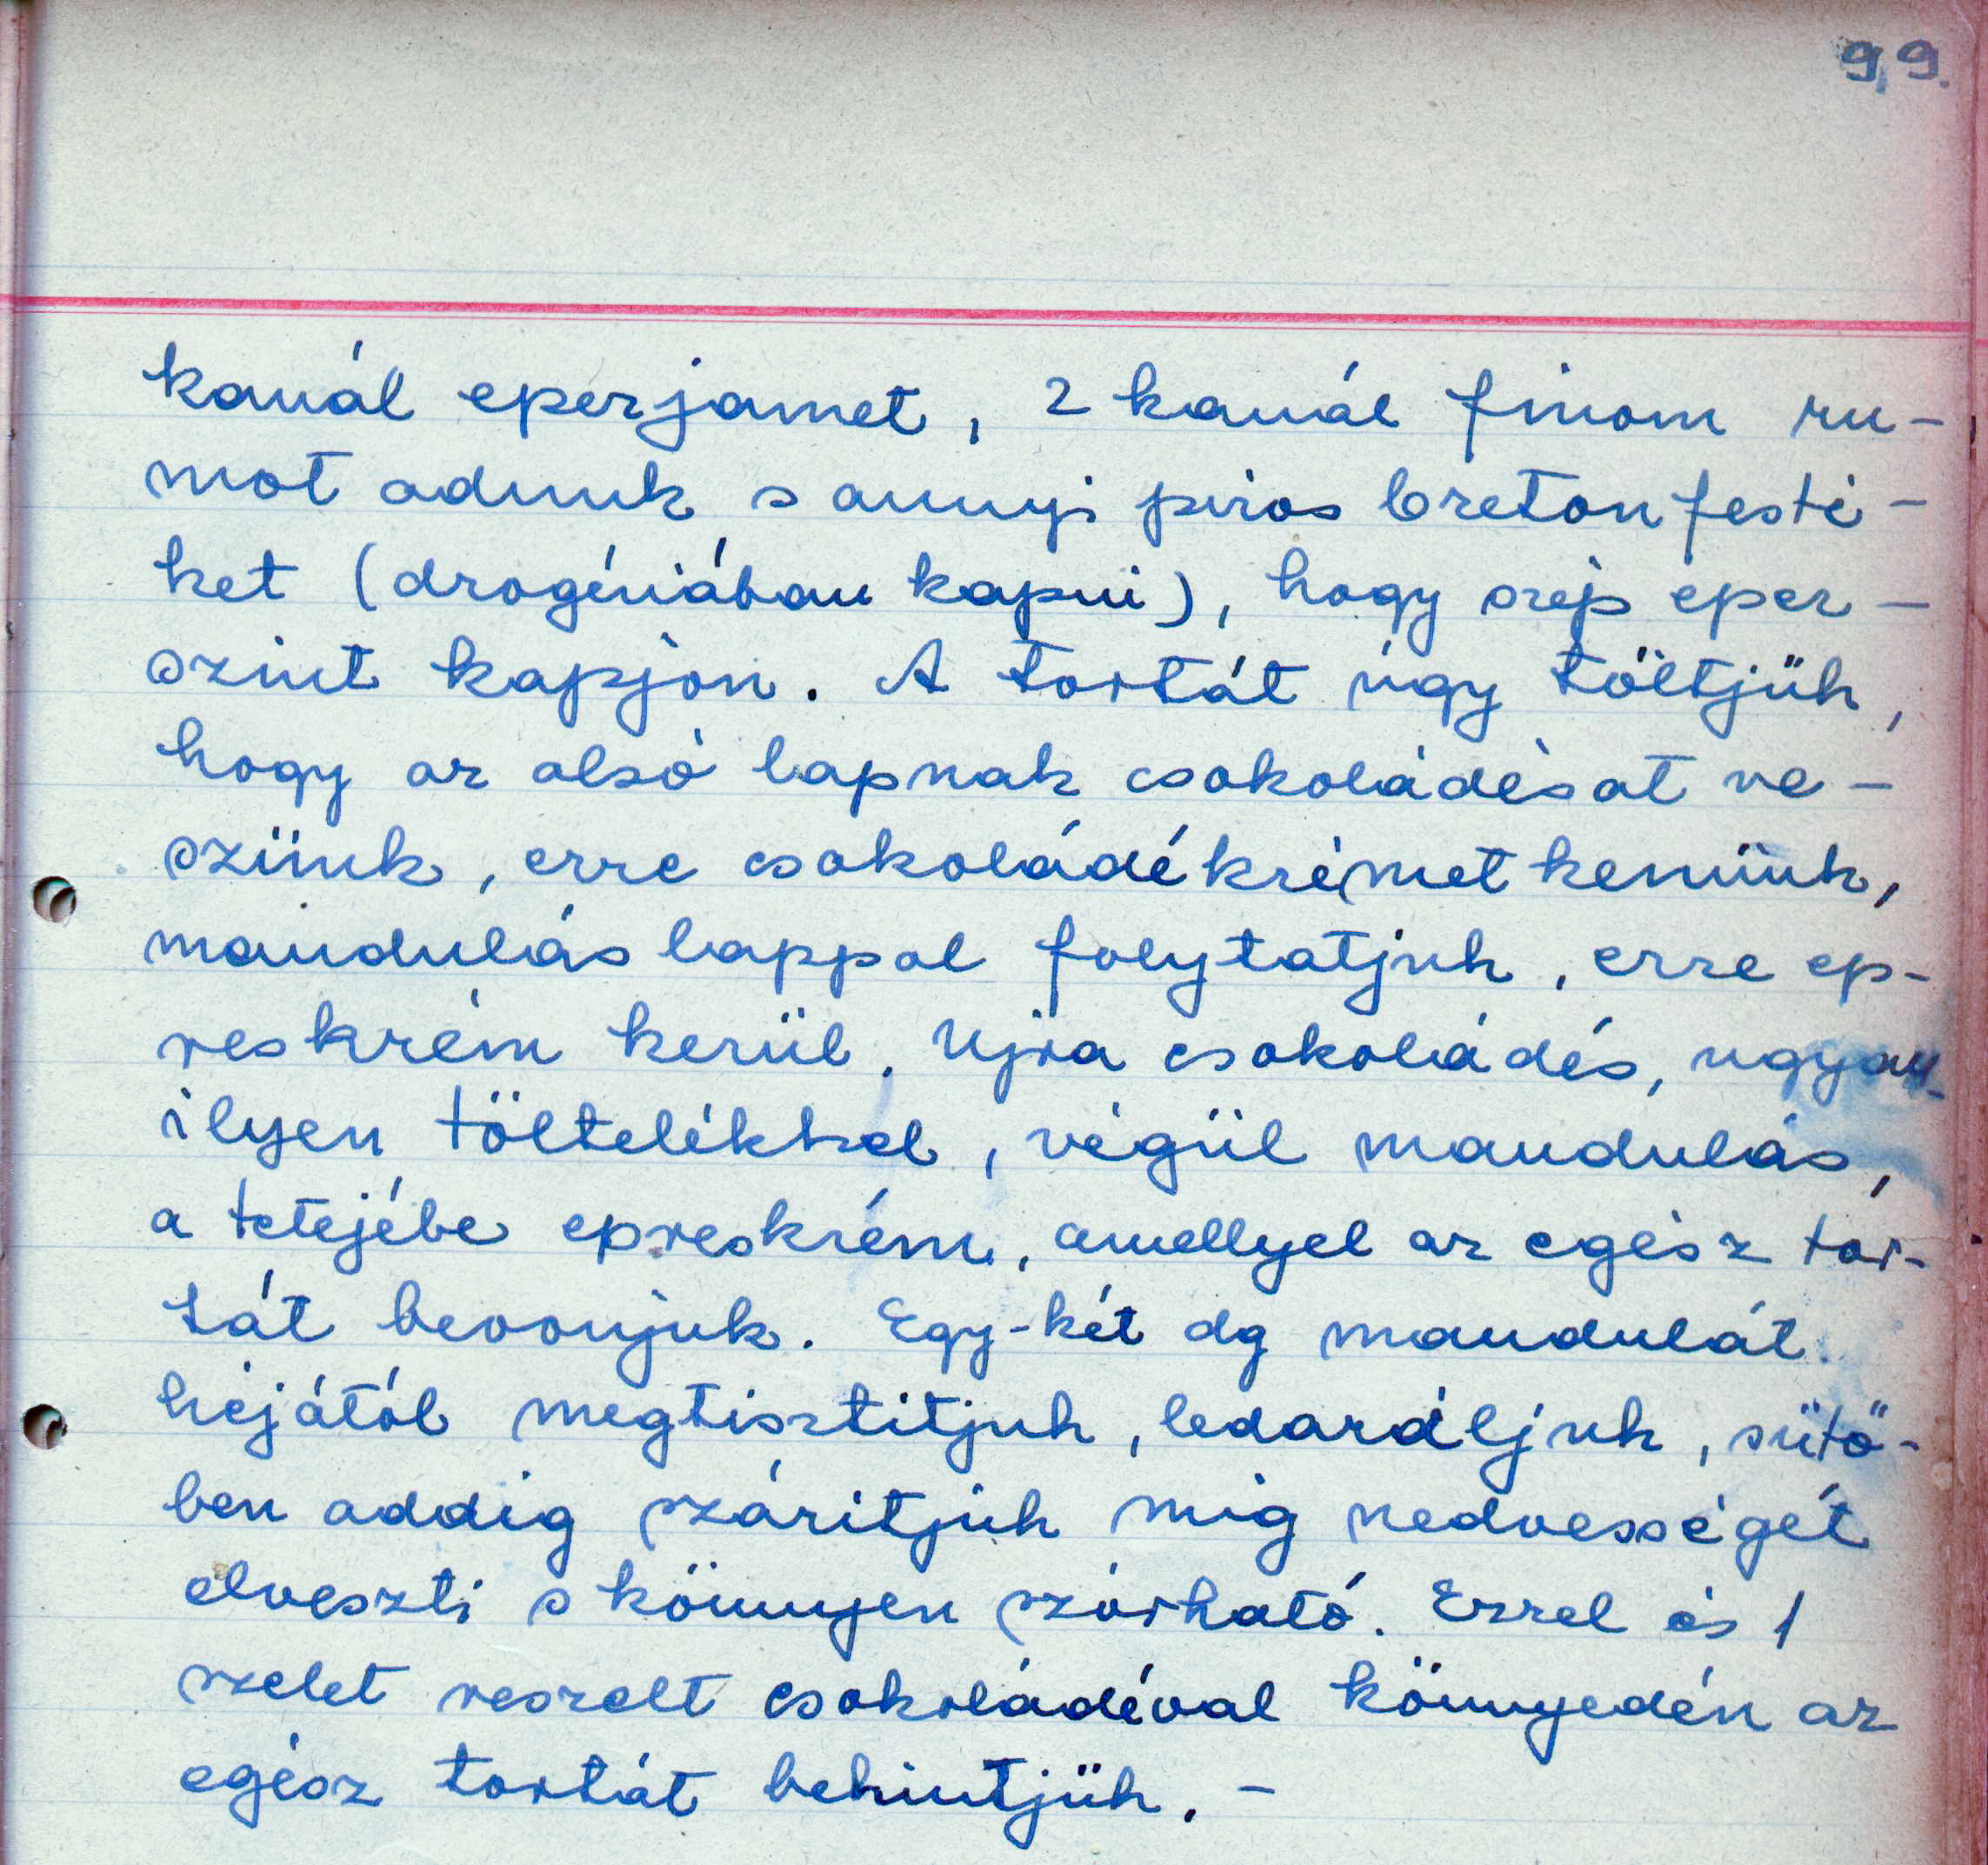 99.
kanál eperjamet, 2 kanál finom ru-
mot adunk s annyi piros breton festé-
ket (drogériában kapni), hogy szép eper-
szint kapjon. A tortát úgy töltjük,
hogy az alsó lapnak csokoládésat ve-
szünk, erre csokoládékrémet kenünk,
mandulás lappal folytatjuk, erre ep-
reskrém kerül. Ujra csokoládés, ugyan-
ilyen töltelékkel, végül mandulás,
a tetejébe epreskrém, amellyel az egész tor-
tát bevonjuk. Egy-két dg mandulát
héjától megtisztitjuk, ledaráljuk, sütő-
ben addig száritjuk mig nedvességét
elveszti s könnyen szórható. Ezzel és 1
szelet reszelt csokoládéval könnyedén az
egész tortát behintjük. -